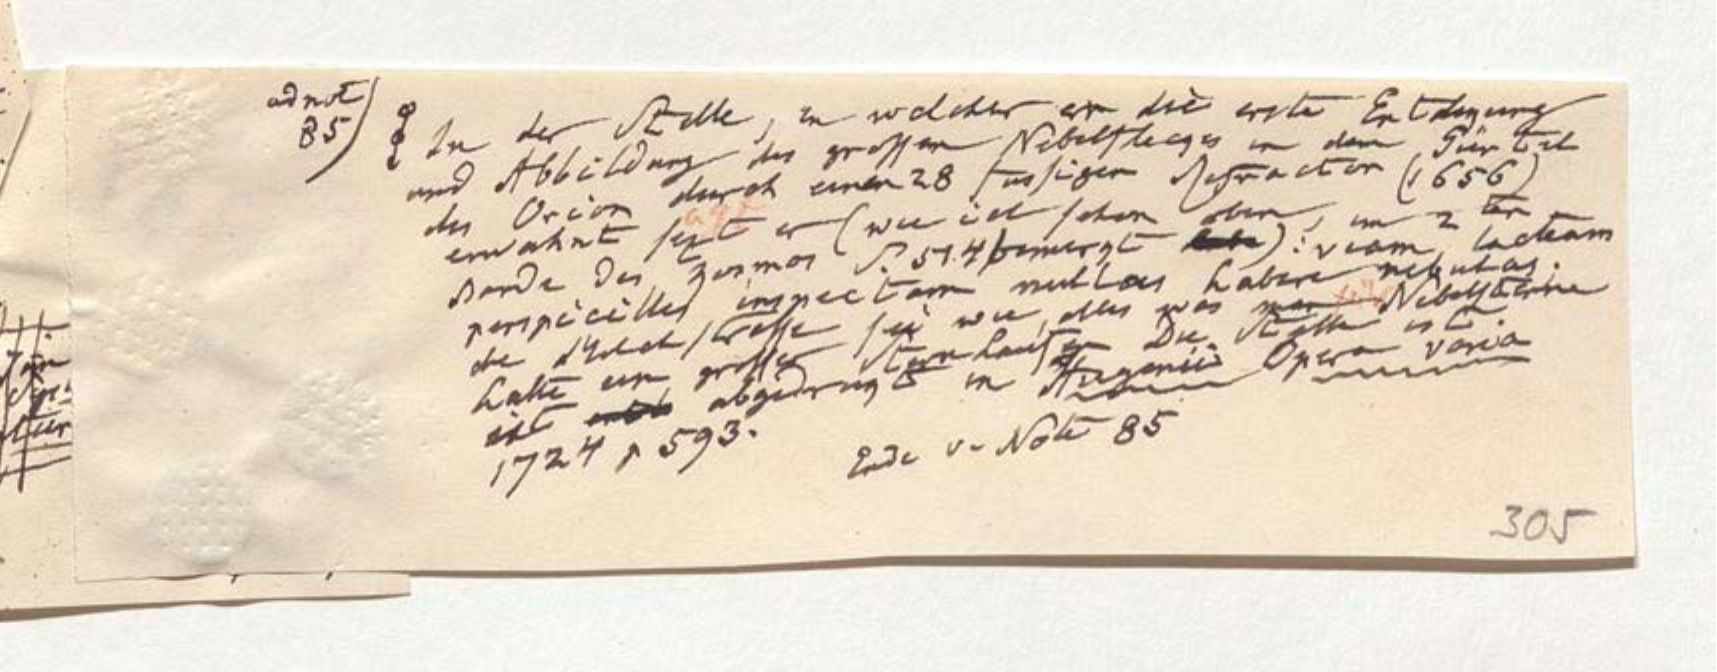 ad not
85)
In der Stelle, in welcher er die erste Entdegung
und Abbildung des grossen Nebelfleges in dem Gürtel
des Orion durch einen 28 fussigen Refractor (1656)
erwähnt sagt er (wie ich schon oben, im 2 ten
Bande des Kosmos S. 514 bemergt): viam lacteam
perspicillis inspectam nullas habere nebulas.
die Milchstrasse sei wie alles was man Nebelsterne
halte ein grosser Sternhaufen Die Stelle ist
abgedrugt in Hugenii Opera varia
1724 p 593.
Ende v. Note 85
305